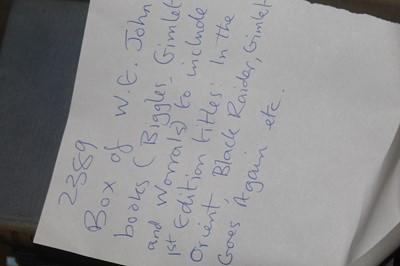 2389
Box of W.E. John
books (Biggles, Gimlet
and Worrals) to include
1st Edition titles: In the
Orient, Black Raider, Gimlet
Goes Again etc.